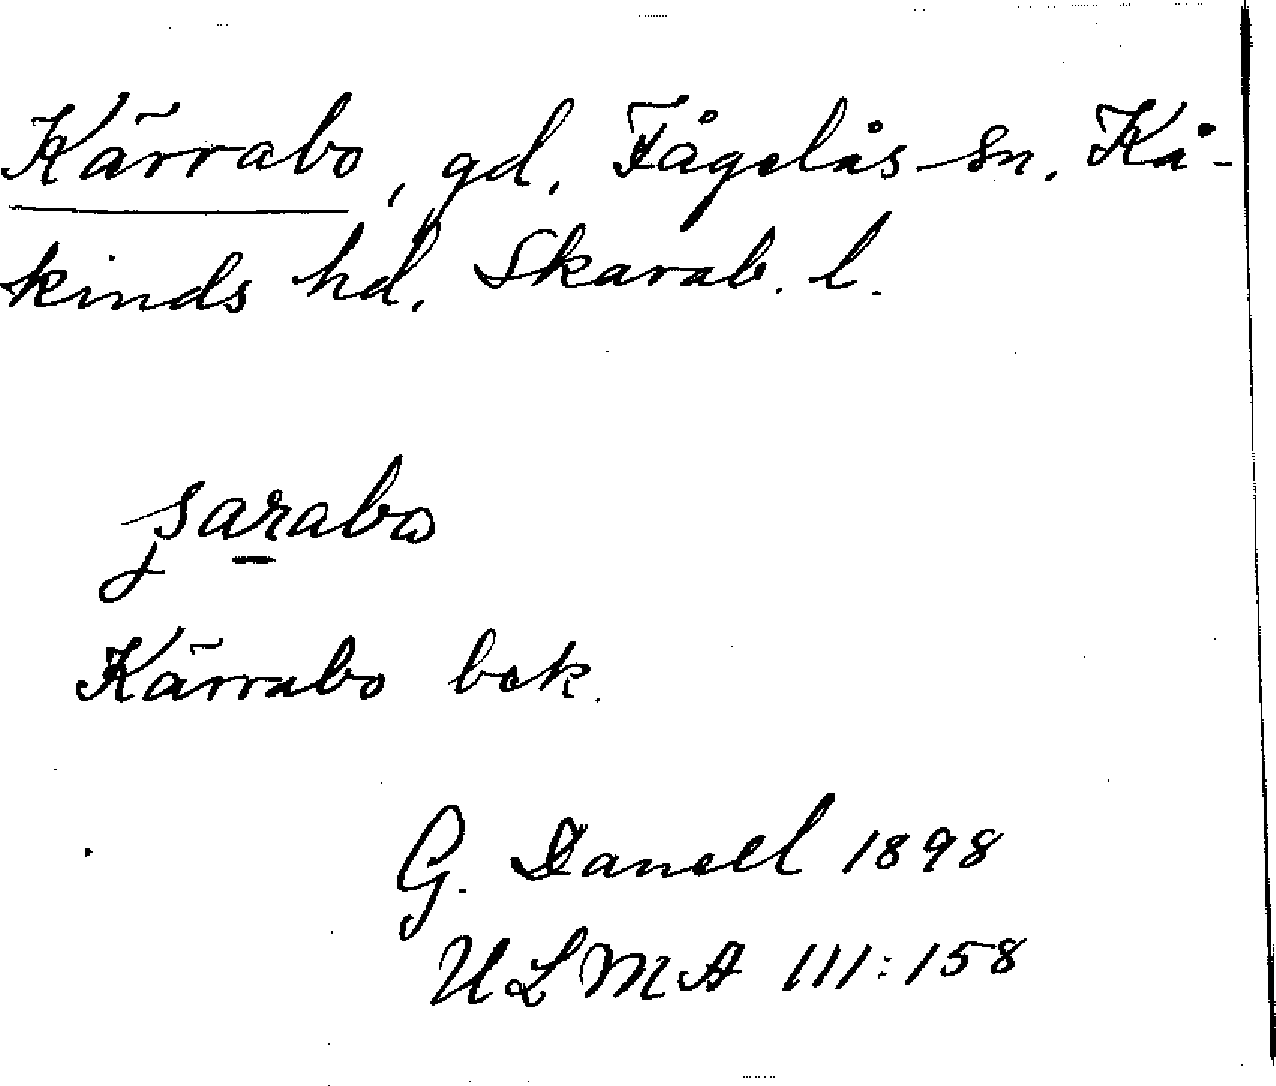 Kärrabo, gd. Fågelås sn. Kå-
kinds hd. Skarab. l.
Kärrabo bok.
G. Danell 1898
ULMA 111:158